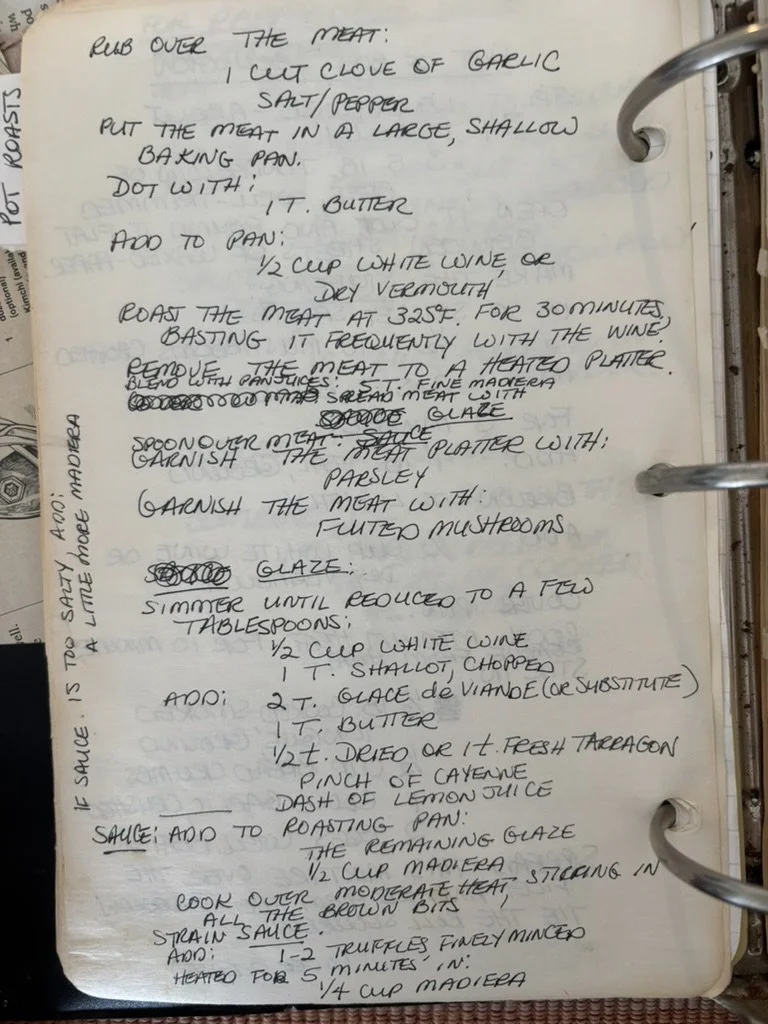 RUB OVER THE MEAT:
1 CUT CLOVE OF GARLIC
SALT/PEPPER
PUT THE MEAT IN A LARGE, SHALLOW
BAKING PAN.
DOT WITH:
1 T. BUTTER
ADD TO PAN:
1/2 CUP WHITE WINE, OR
DRY VERMOUTH
ROAST THE MEAT AT 325°F. FOR 30 MINUTES,
BASTING IT FREQUENTLY WITH THE WINE.
REMOVE THE MEAT TO A HEATED PLATTER.
BLEND WITH PAN JUICES: 5 T. FINE MADIERA
SPREAD MEAT WITH
GLAZE
SPOON OVER MEAT: SAUCE
GARNISH THE MEAT PLATTER WITH:
PARSLEY
GARNISH THE MEAT WITH:
FLUTED MUSHROOMS
GLAZE:
SIMMER UNTIL REDUCED TO A FEW
TABLESPOONS:
1/2 CUP WHITE WINE
1 T. SHALLOT, CHOPPED
ADD: 2 T. GLACE de VIANDE (OR SUBSTITUTE)
1 T. BUTTER
1/2 t. DRIED, OR 1 t. FRESH TARRAGON
PINCH OF CAYENNE
DASH OF LEMON JUICE
SAUCE: ADD TO ROASTING PAN:
THE REMAINING GLAZE
1/2 CUP MADIERA
COOK OVER MODERATE HEAT, STIRRING IN
ALL THE BROWN BITS
STRAIN SAUCE.
ADD: 1-2 TRUFFLES FINELY MINCED
HEATED FOR 5 MINUTES IN:
1/4 CUP MADIERA
IF SAUCE IS TOO SALTY, ADD:
A LITTLE MORE MADIERA
POT ROASTS
(optional)
Kimchi